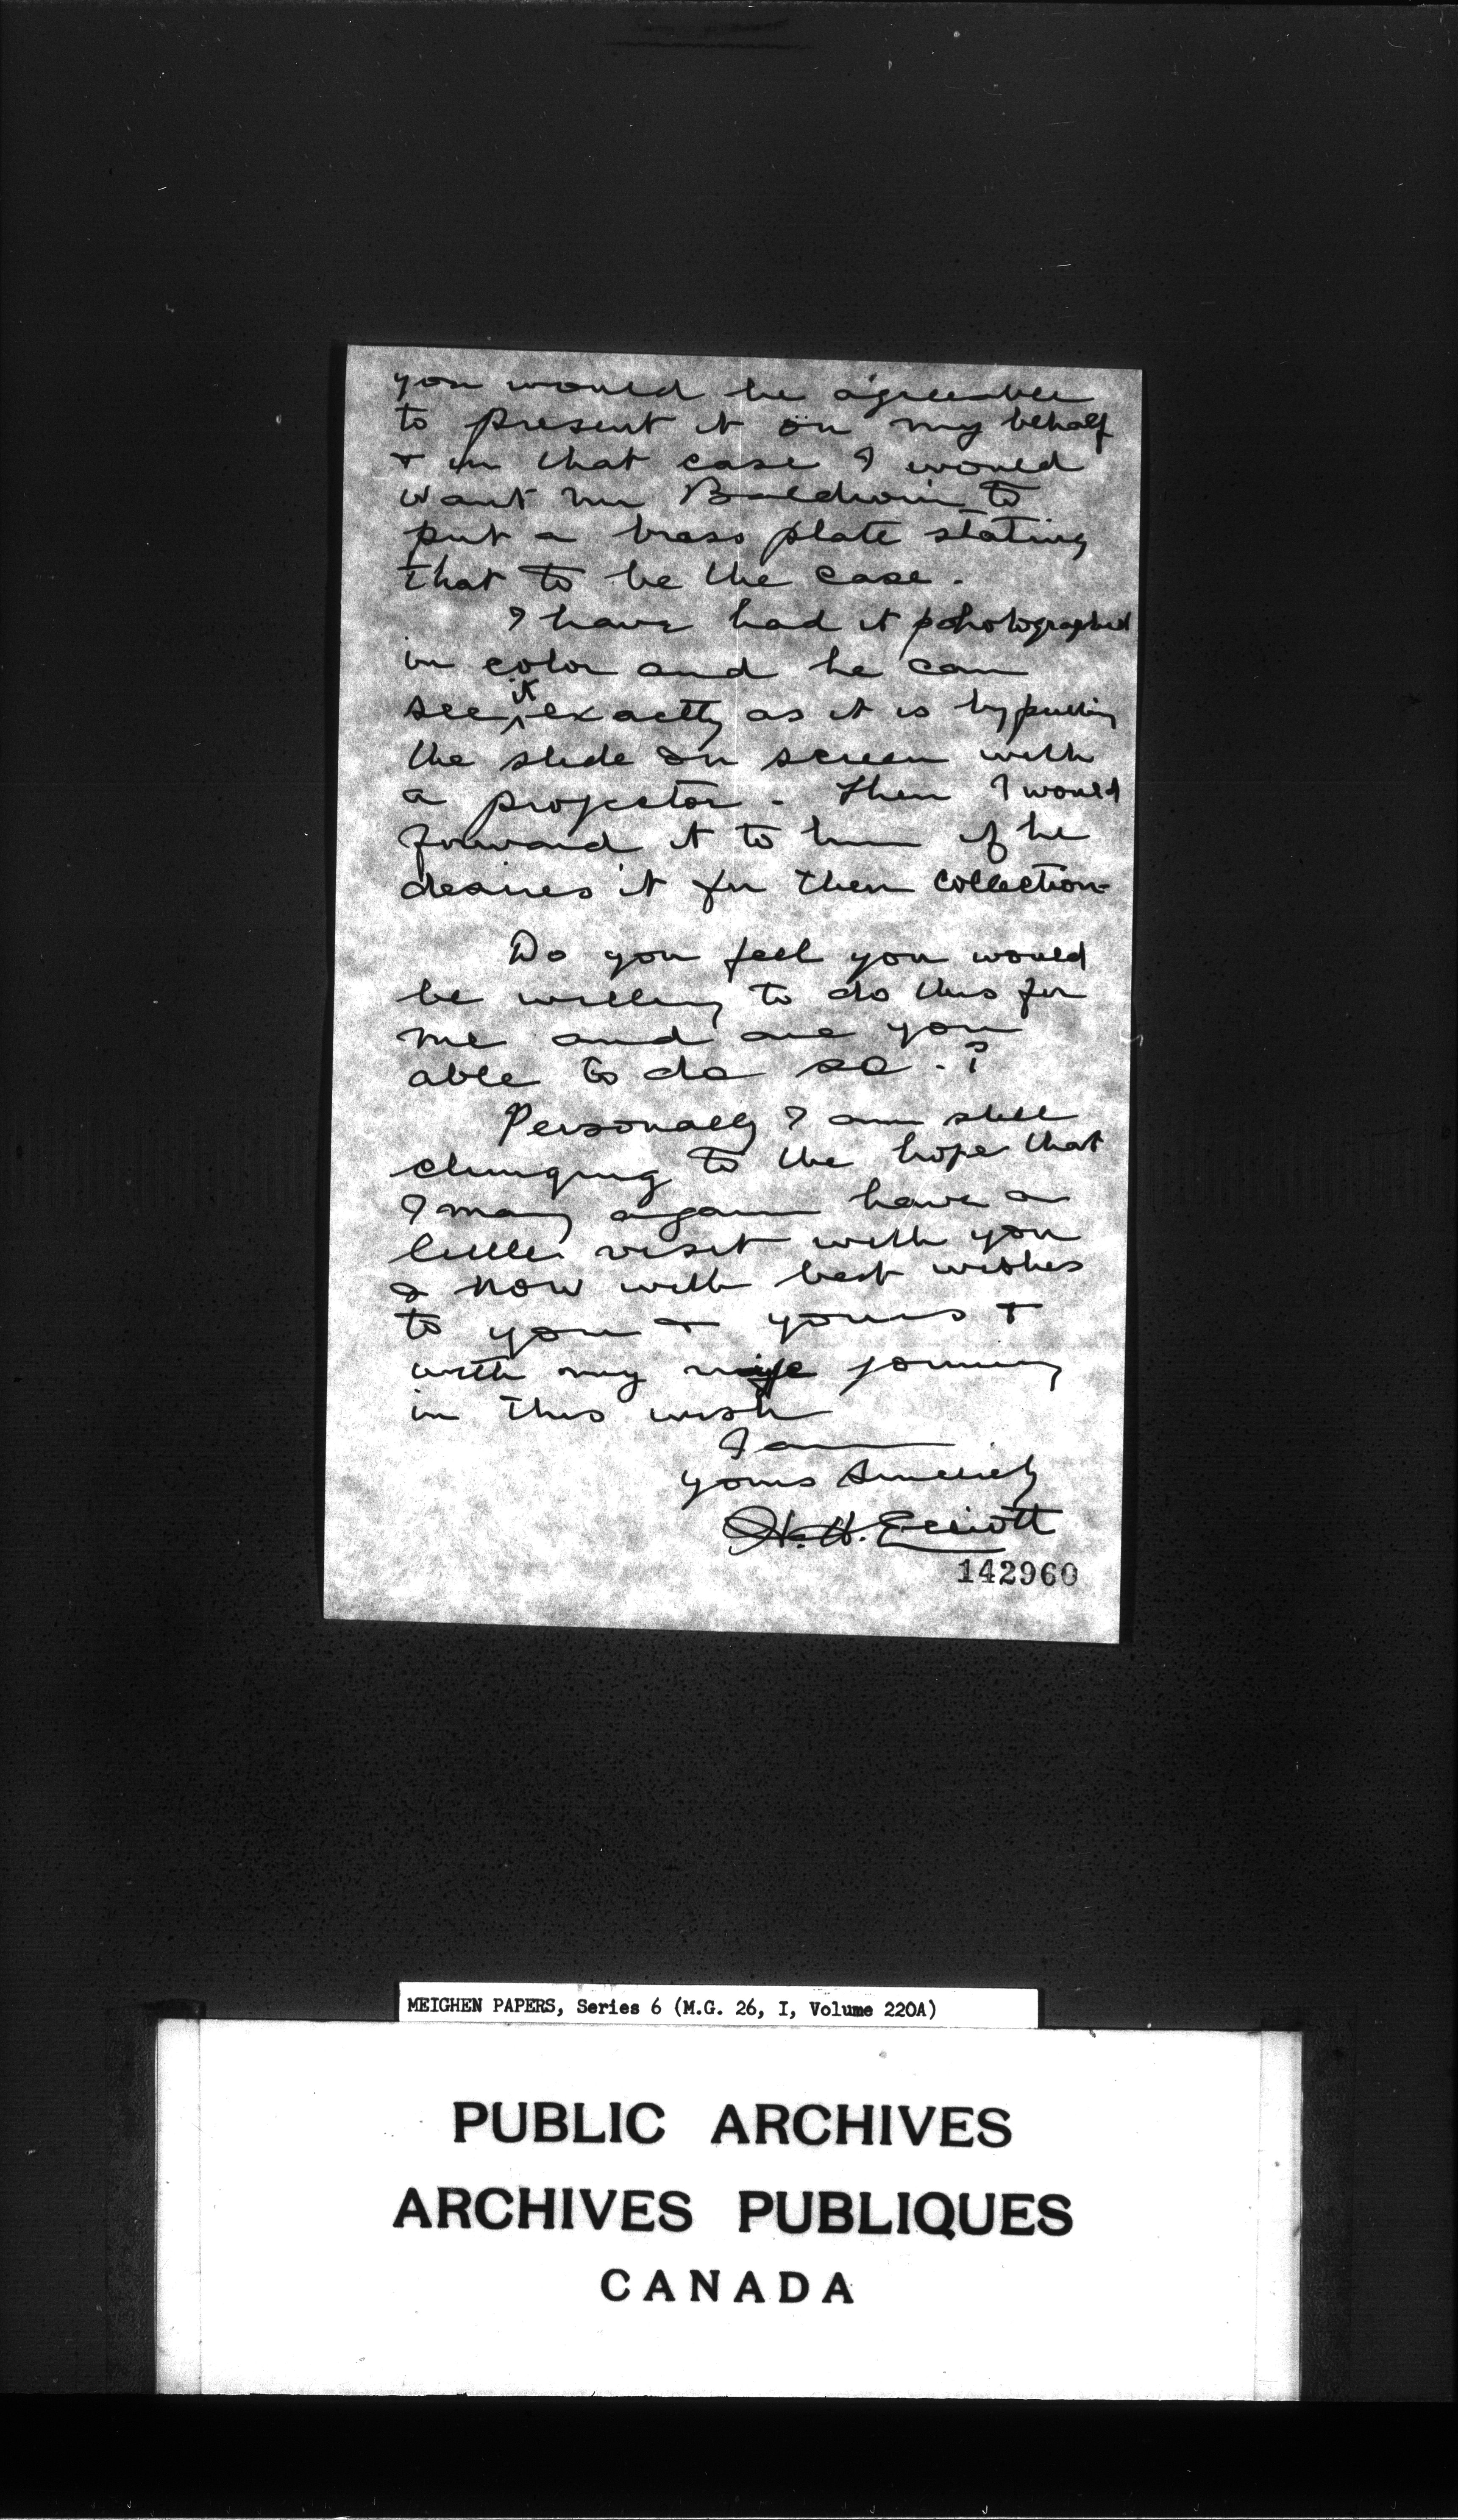 you would be agreeable
to present it on my behalf
+ in that case I would
want Mr Baldwin to
put a brass plate stating
that to be the case.
I have had it pohotographed
in color and he can
see it exactly as it is by putting
the slide on screen with
a projector. Then I would
forward it to him if he
desires it for their collection-
Do you feel you would
be willing to do this for
me and are you
able to do so.?
Personally I am still
clinging to the hope that
I may again have a
little visit with you
& now with best wishes
to you + yours +
with my wife joining
in this wish
I am
yours sincerely
H. H. Elliott
142960
MEIGHEN PAPERS, Series 6 (M.G. 26, I, Volume 220A)
PUBLIC ARCHIVES
ARCHIVES PUBLIQUES
CANADA